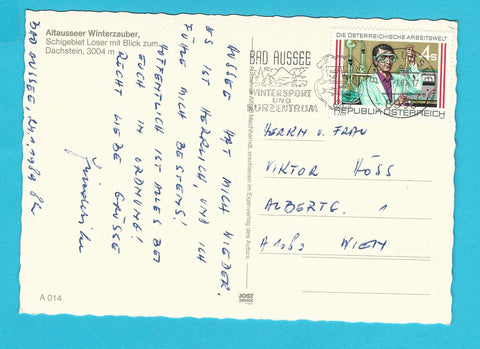 Altausseer Winterzauber,
Schigebiet Loser mit Blick zum
Dachstein, 3004 m
AUSSEE HAT MICH WIEDER,
ES IST HERRLICH, UND ICH
FÜHLE MICH BESTENS!
HOFFENTLICH IST ALLES BEI
EUCH IN ORDNUNG!
RECHT LIEBE GRÜSSE
BAD AUSSEE, 24.1.1989
A 014
BAD AUSSEE
WINTERSPORT
UND
KURZENTRUM
DIE ÖSTERREICHISCHE ARBEITSWELT
4s
REPUBLIK ÖSTERREICH
HERRN U. FRAU
VIKTOR HÖSS
ALBERTG. 1
A 1080 WIEN
JOST